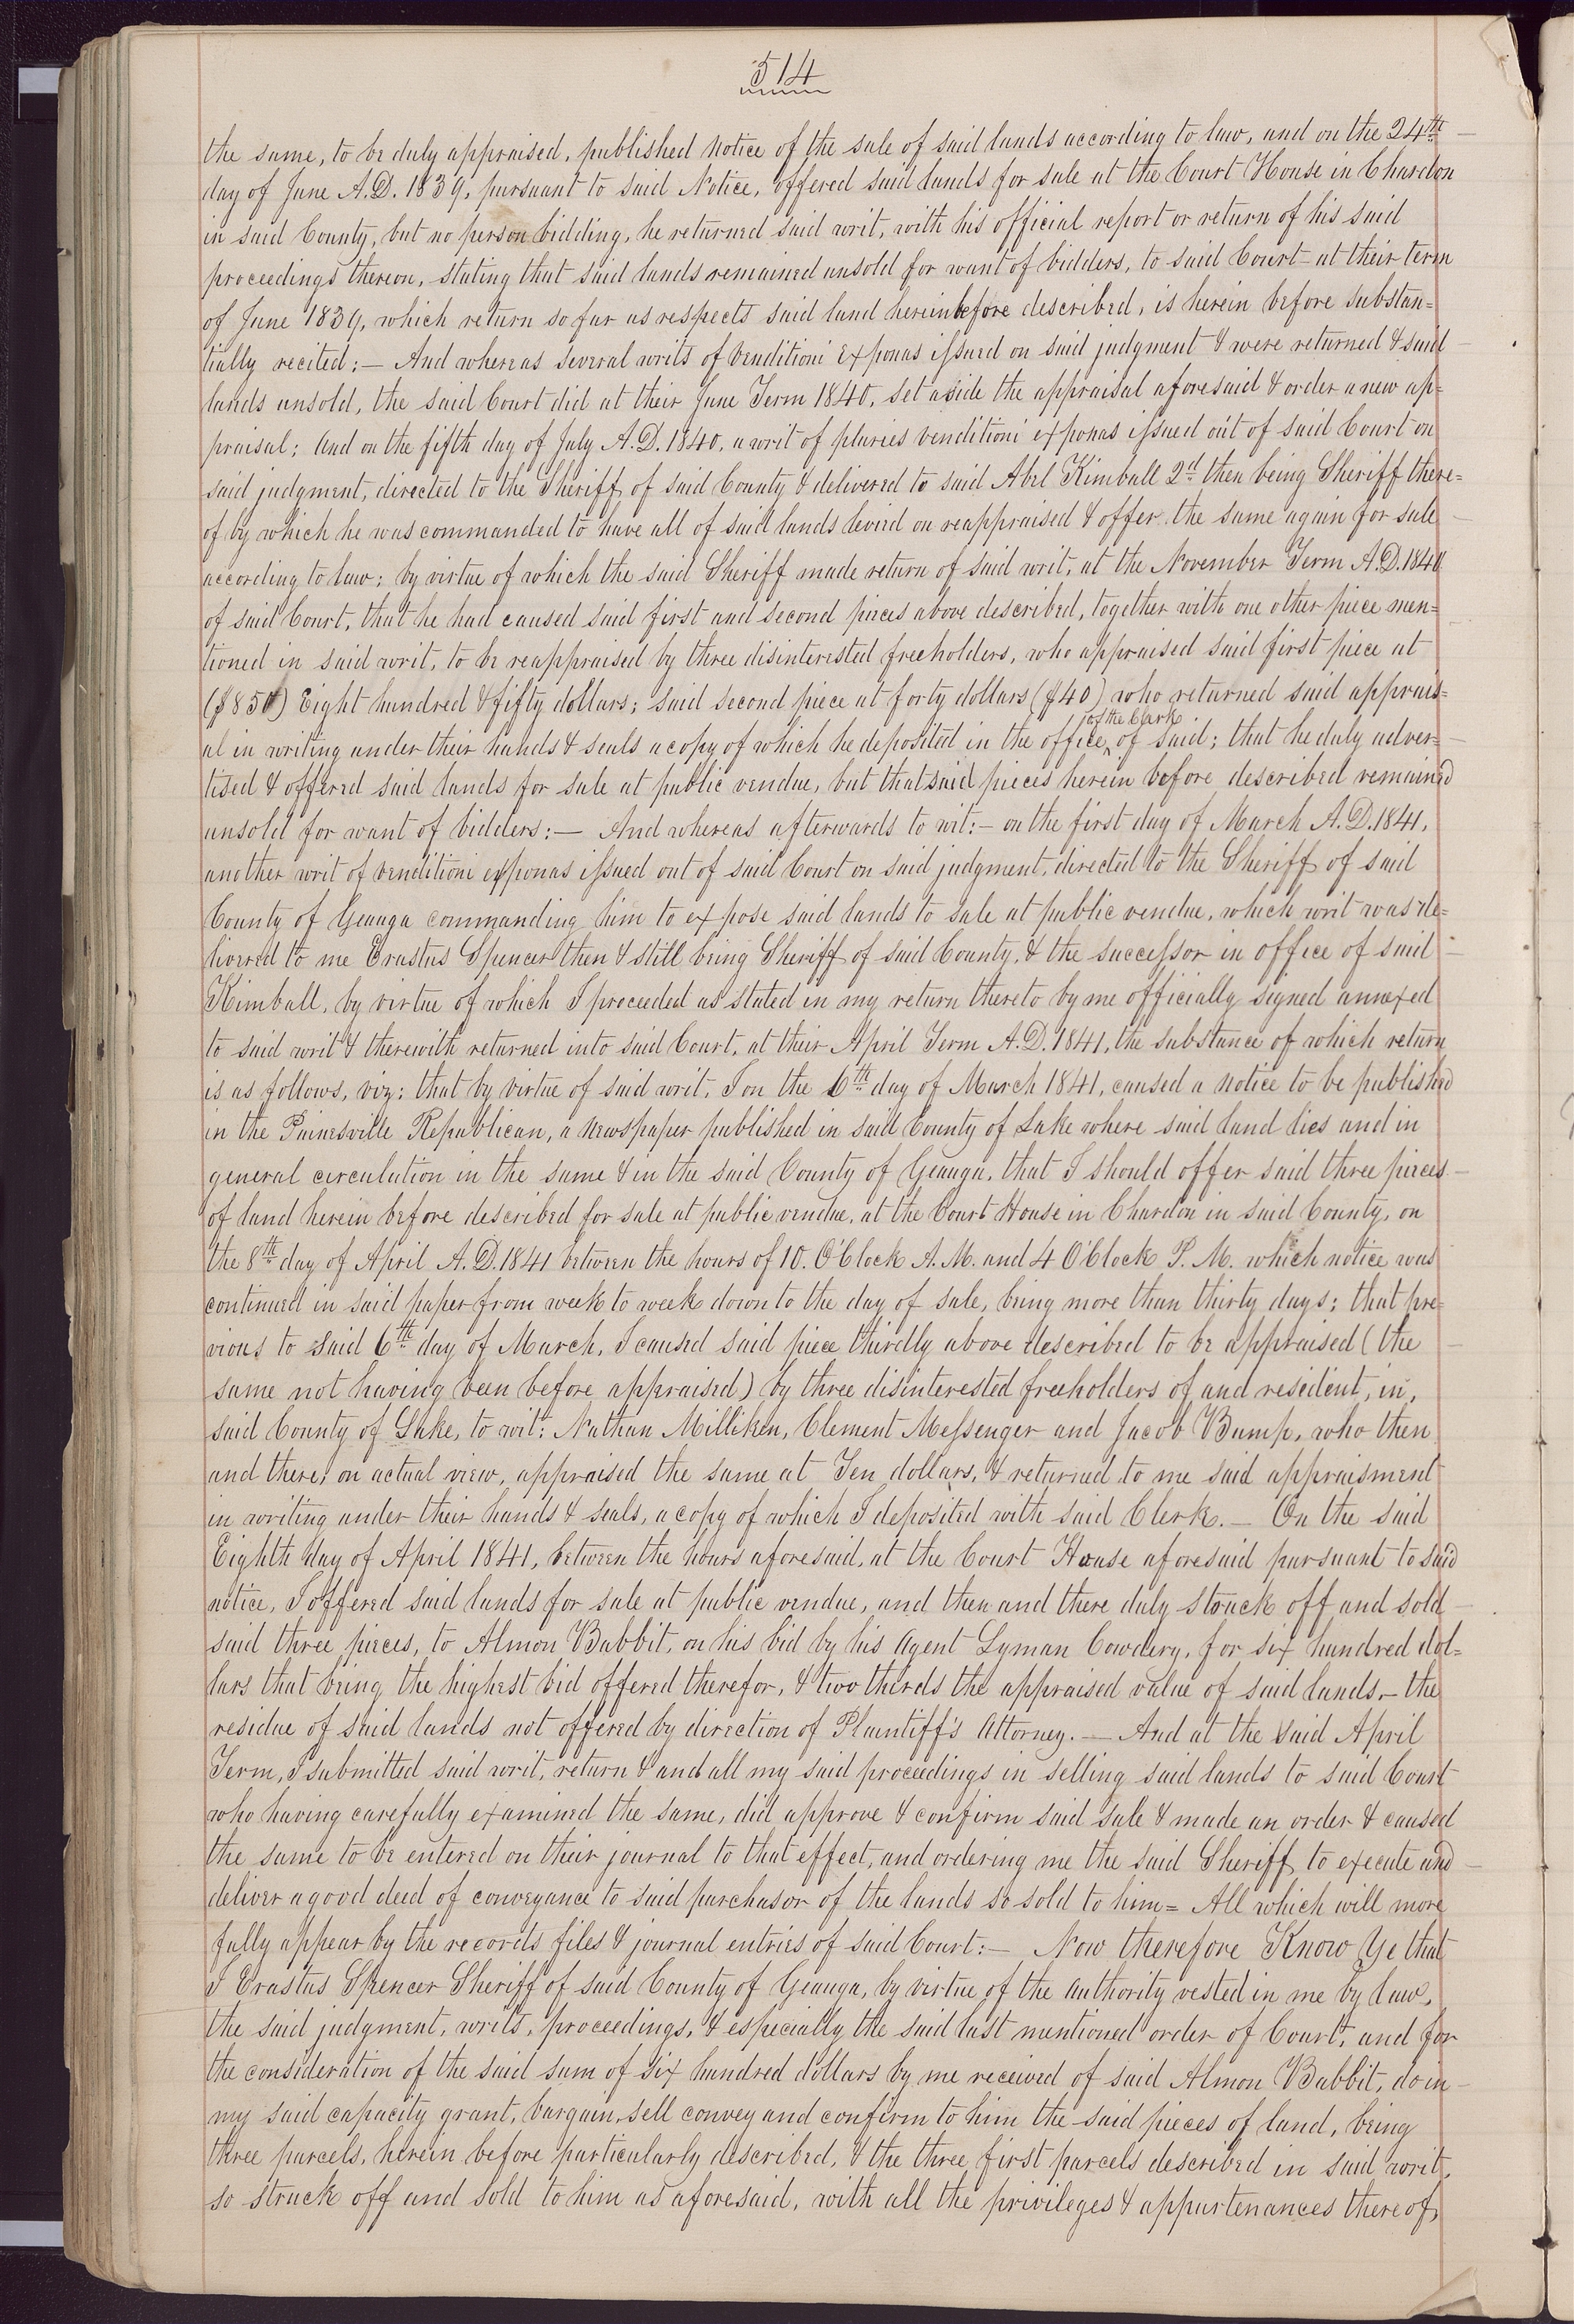 514
the same, to be duly appraised, published notice of the sale of said lands according to law, and on the 24th
day of June A.D. 1839, pursuant to said Notice, offered said lands for sale at the Court House in Chardon
in said County, but no person bidding, he returned said writ, with his official report or return of his said
proceedings thereon, stating that said lands remained unsold for want of bidders, to said Court at their term
of June 1839, which return so far as respects said land hereinbefore described, is herein before substan=
tially recited:— And whereas several writs of Venditioni Exponas issued on said judgment & were returned & said
lands unsold, the said Court did at their June Term 1840, set aside the appraisal aforesaid & order a new ap=
praisal; And on the fifth day of July A.D. 1840, a writ of pluries venditioni exponas issued out of said Court on
said judgment, directed to the Sheriff of said County & delivered to said Abel Kimball 2d then being Sheriff there=
of by which he was commanded to have all of said lands levied on reappraised & offer the same again for sale
according to law; by virtue of which the said Sheriff made return of said writ, at the November Term A.D. 1840
of said Court, that he had caused said first and second pieces above described, together with one other piece men=
tioned in said writ, to be reappraised by three disinterested freeholders, who appraised said first piece at
($850) Eight hundred & fifty dollars; said second piece at forty dollars ($40) who returned said apprais=
of the Clerk
al in writing under their hands & seals a copy of which he deposited in the office ^ of said; that he duly adver=
tised & offered said lands for sale at public vendue, but that said pieces herein before described remained
unsold for want of bidders:— And whereas afterwards to wit:— on the first day of March A.D. 1841,
another writ of venditioni exponas issued out of said Court on said judgment, directed to the Sheriff of said
County of Geauga commanding him to expose said lands to sale at public vendue, which writ was de=
livered to me Erastus Spencer then & still being Sheriff of said County, & the successor in office of said
Kimball, by virtue of which I proceeded as stated in my return thereto by me officially signed annexed
to said writ & therewith returned into said Court, at their April Term A.D. 1841, the substance of which return
is as follows, viz: that by virtue of said writ, I on the 6th day of March 1841, caused a notice to be published
in the Painesville Republican, a newspaper published in said County of Lake where said land lies and in
general circulation in the same & in the said County of Geauga, that I should offer said three pieces
of land herein before described for sale at public vendue, at the Court House in Chardon in said County, on
the 8th day of April A.D. 1841 between the hours of 10. O'Clock A.M. and 4 O'Clock P.M. which notice was
continued in said paper from week to week down to the day of sale, being more than thirty days; that pre=
vious to said 6th day of March, I caused said piece thirdly above described to be appraised (the
same not having been before appraised) by three disinterested freeholders of and resident, in,
said County of Lake, to wit: Nathan Milliken, Clement Messenger and Jacob Bump, who then
and there, on actual view, appraised the same at Ten dollars, & returned to me said appraisment
in writing under their hands & seals, a copy of which I deposited with said Clerk.— On the said
Eighth day of April 1841, between the hours aforesaid, at the Court House aforesaid pursuant to said
notice, I offered said lands for sale at public vendue, and then and there duly struck off and sold
said three pieces, to Almon Babbit, on his bid by his Agent Lyman Cowdery, for six hundred dol=
lars that being the highest bid offered therefor, & two thirds the appraised value of said lands,— the
residue of said lands not offered by direction of Plaintiff's Attorney.— And at the said April
Term, I submitted said writ, return & and all my said proceedings in selling said lands to said Court
who having carefully examined the same, did approve & confirm said sale & made an order & caused
the same to be entered on their journal to that effect, and ordering me the said Sheriff to execute and
deliver a good deed of conveyance to said purchasor of the lands so sold to him= All which will more
fully appear by the records files & journal entries of said Court:— Now therefore Know Ye that
I Erastus Spencer Sheriff of said County of Geauga, by virtue of the authority vested in me by law,
the said judgment, writs, proceedings, & especially the said last mentioned order of Court, and for
the consideration of the said sum of six hundred dollars by me received of said Almon Babbit, do in
my said capacity grant, bargain, sell convey and confirm to him the said pieces of land, being
three parcels, herein before particularly described, & the three first parcels described in said writ,
so struck off and sold to him as aforesaid, with all the privileges & appurtenances thereof,